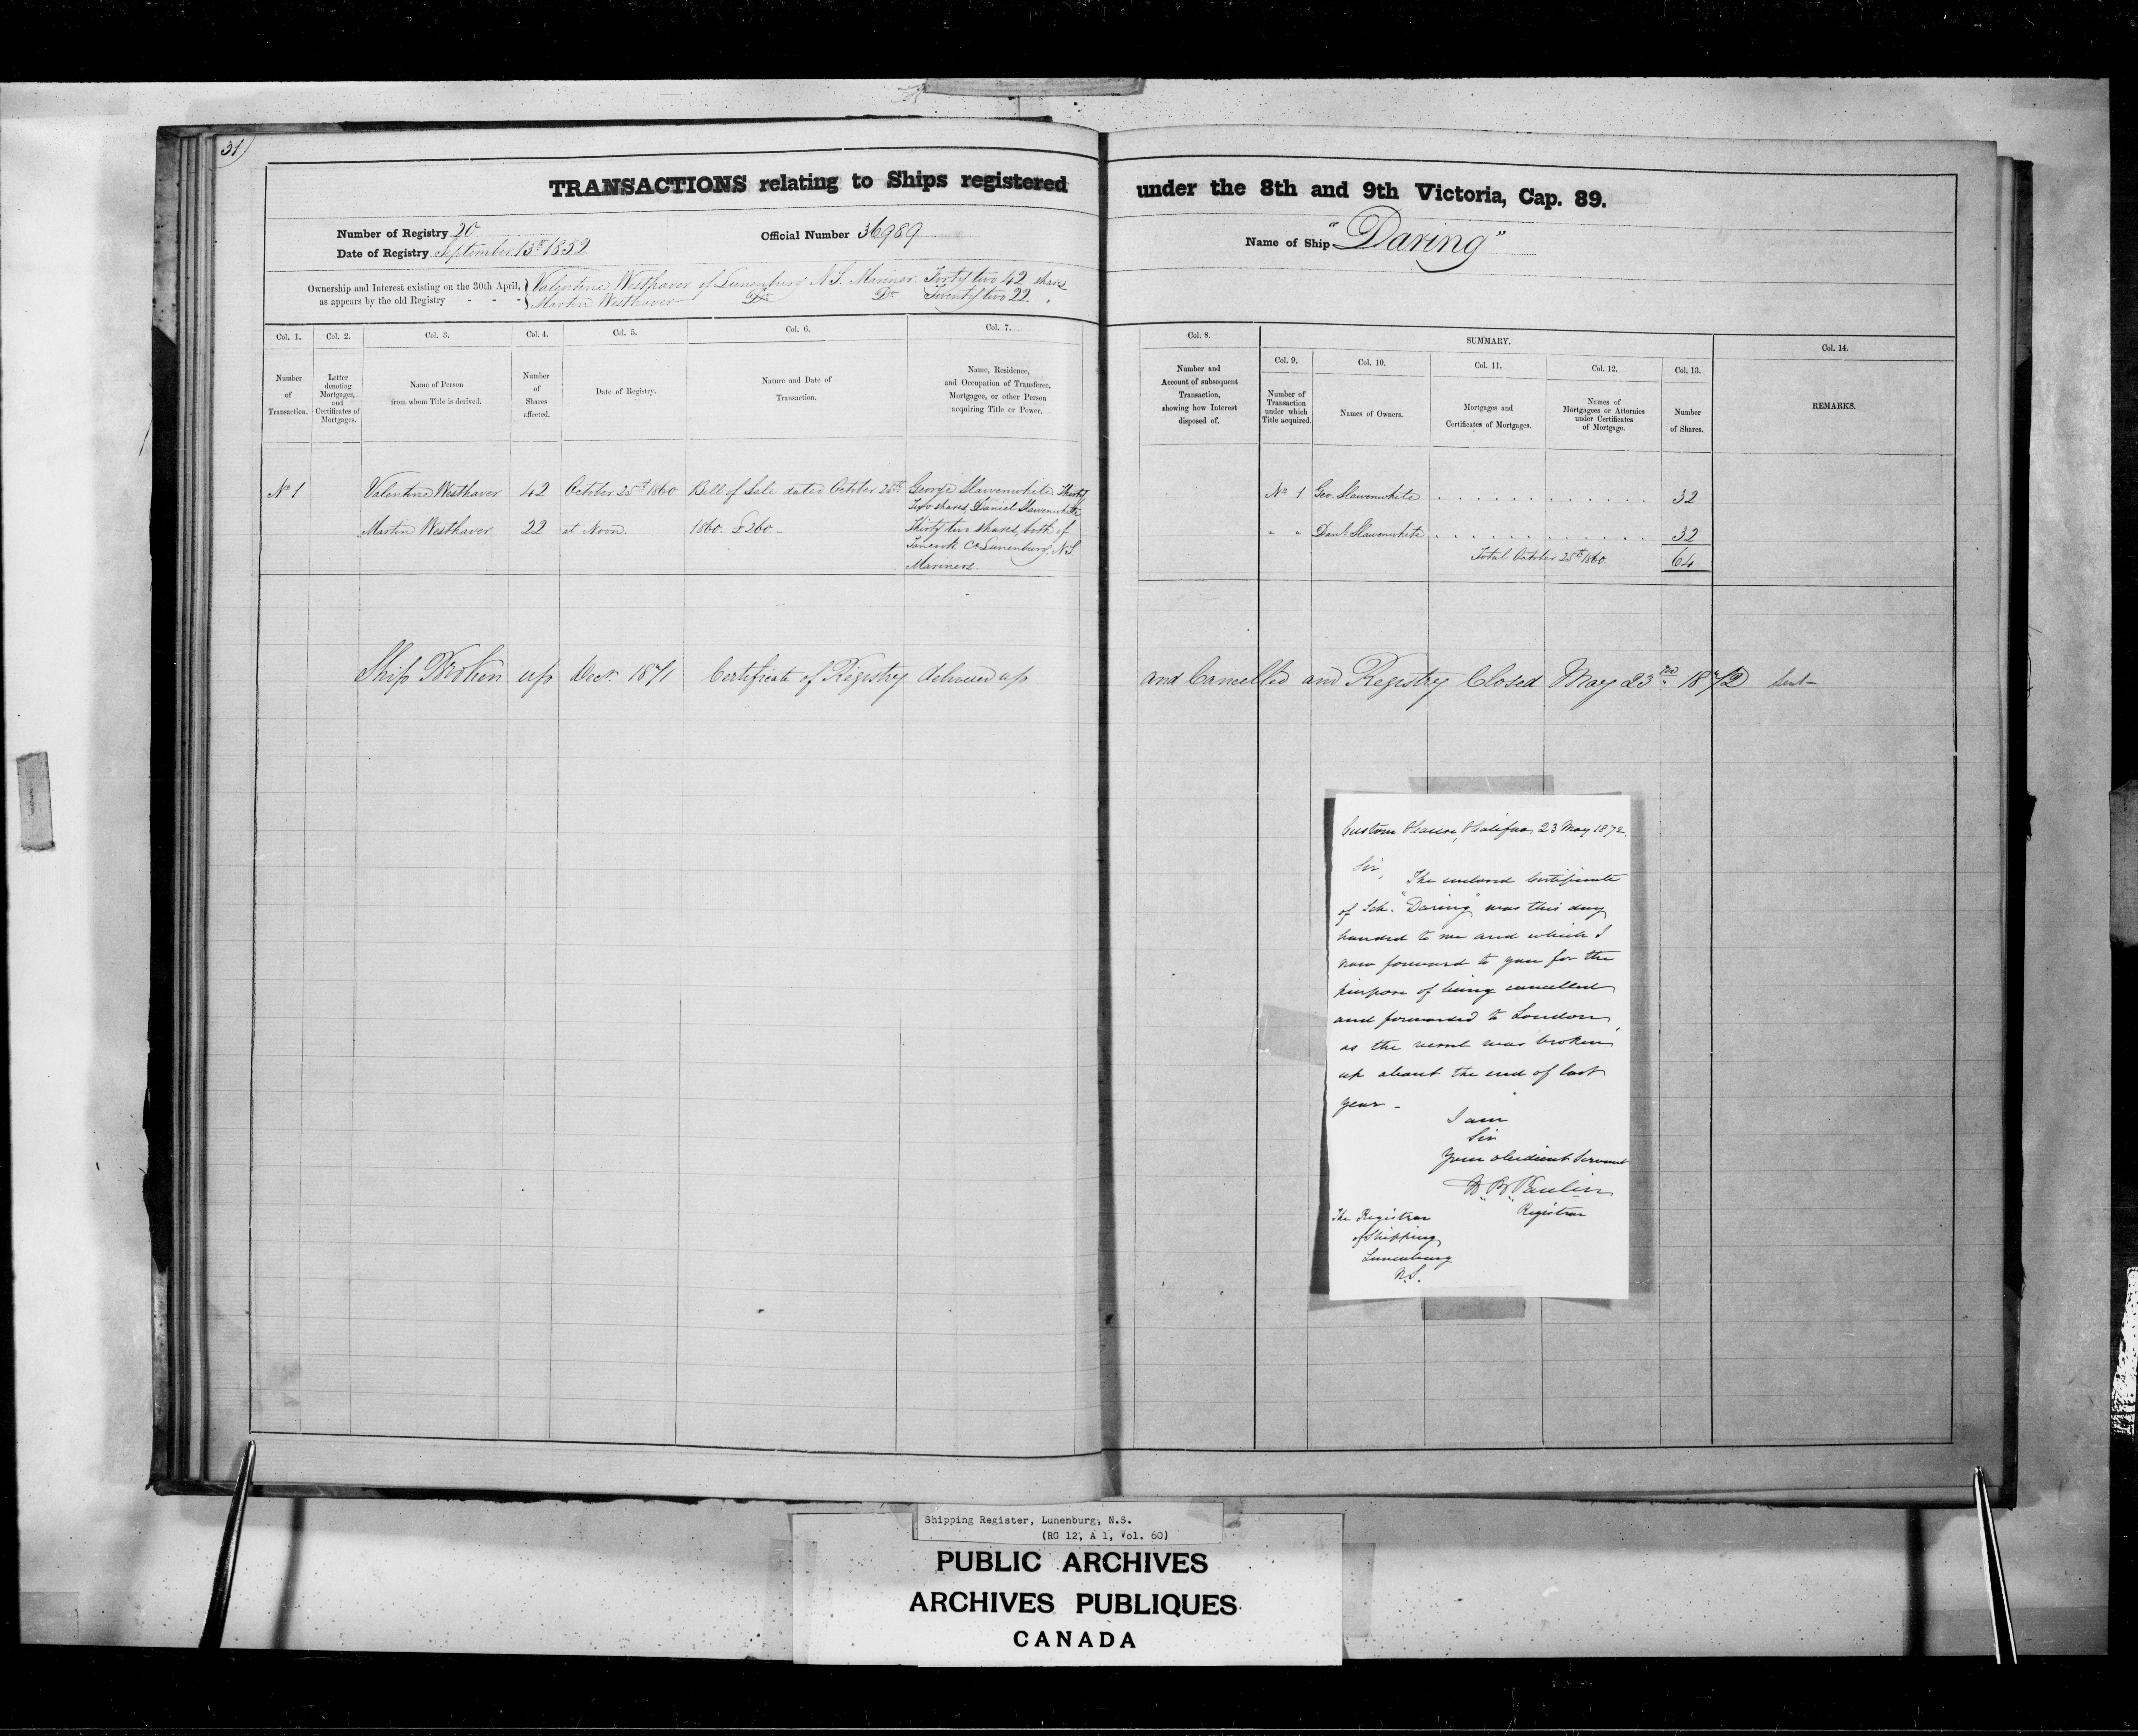 31)
TRANSACTIONS relating to Ships registered under the 8th and 9th Victoria, Cap. 89.
Number of Registry 20
Official Number 36989
Name of Ship "Daring"
Date of Registry September 13th 1852
Ownership and Interest existing on the 30th April, as appears by the old Registry - - -
Valentine Westhaver of Lunenburg N.S. Mariner Forty two 42 shares
Martin Westhaver Do Do Twenty two 22 "
Col. 1. Col. 2. Col. 3. Col. 4. Col. 5. Col. 6. Col. 7. Col. 8. SUMMARY. Col. 14.
Col. 9. Col. 10. Col. 11. Col. 12. Col. 13.
Number of Transaction.
Letter denoting Mortgages, and Certificates of Mortgages.
Name of Person from whom Title is derived.
Number of Shares affected.
Date of Registry.
Nature and Date of Transaction.
Name, Residence, and Occupation of Transferee, Mortgagee, or other Person acquiring Title or Power.
Number and Account of subsequent Transaction, showing how Interest disposed of.
Number of Transaction under which Title acquired.
Names of Owners.
Mortgages and Certificates of Mortgages.
Names of Mortgagees or Attornies under Certificates of Mortgage.
Number of Shares.
REMARKS.
No 1 Valentine Westhaver 42 October 25th 1860 Bill of Sale dated October 25th George Slawenwhite Thirty
two shares, Daniel Slawenwhite
Martin Westhaver 22 at Noon. 1860. £260.- Thirty two shares, both of
Tancook Co Lunenburg, N.S.
Mariners.
No 1 Geo. Slawenwhite . . . . . . . . . . . . 32
" " Danl. Slawenwhite . . . . . . . . . . . . 32
Total October 25th 1860. 64
Ship Broken up Decr 1871 Certificate of Registry delivered up and Cancelled and Registry Closed May 23rd 1872
Custom House, Halifax, 23 May 1872.
Sir,
The enclosed Certificate
of Sch. "Daring" was this day
handed to me and which I
now forward to you for the
purpose of being cancelled
and forwarded to London,
as the vessel was broken
up about the end of last
year -
I am
Sir
Your obedient Servant
Registrar
The Registrar
of Shipping
Lunenburg
N.S.
Shipping Register, Lunenburg, N.S.
(RG 12, A 1, Vol. 60)
PUBLIC ARCHIVES
ARCHIVES PUBLIQUES
CANADA